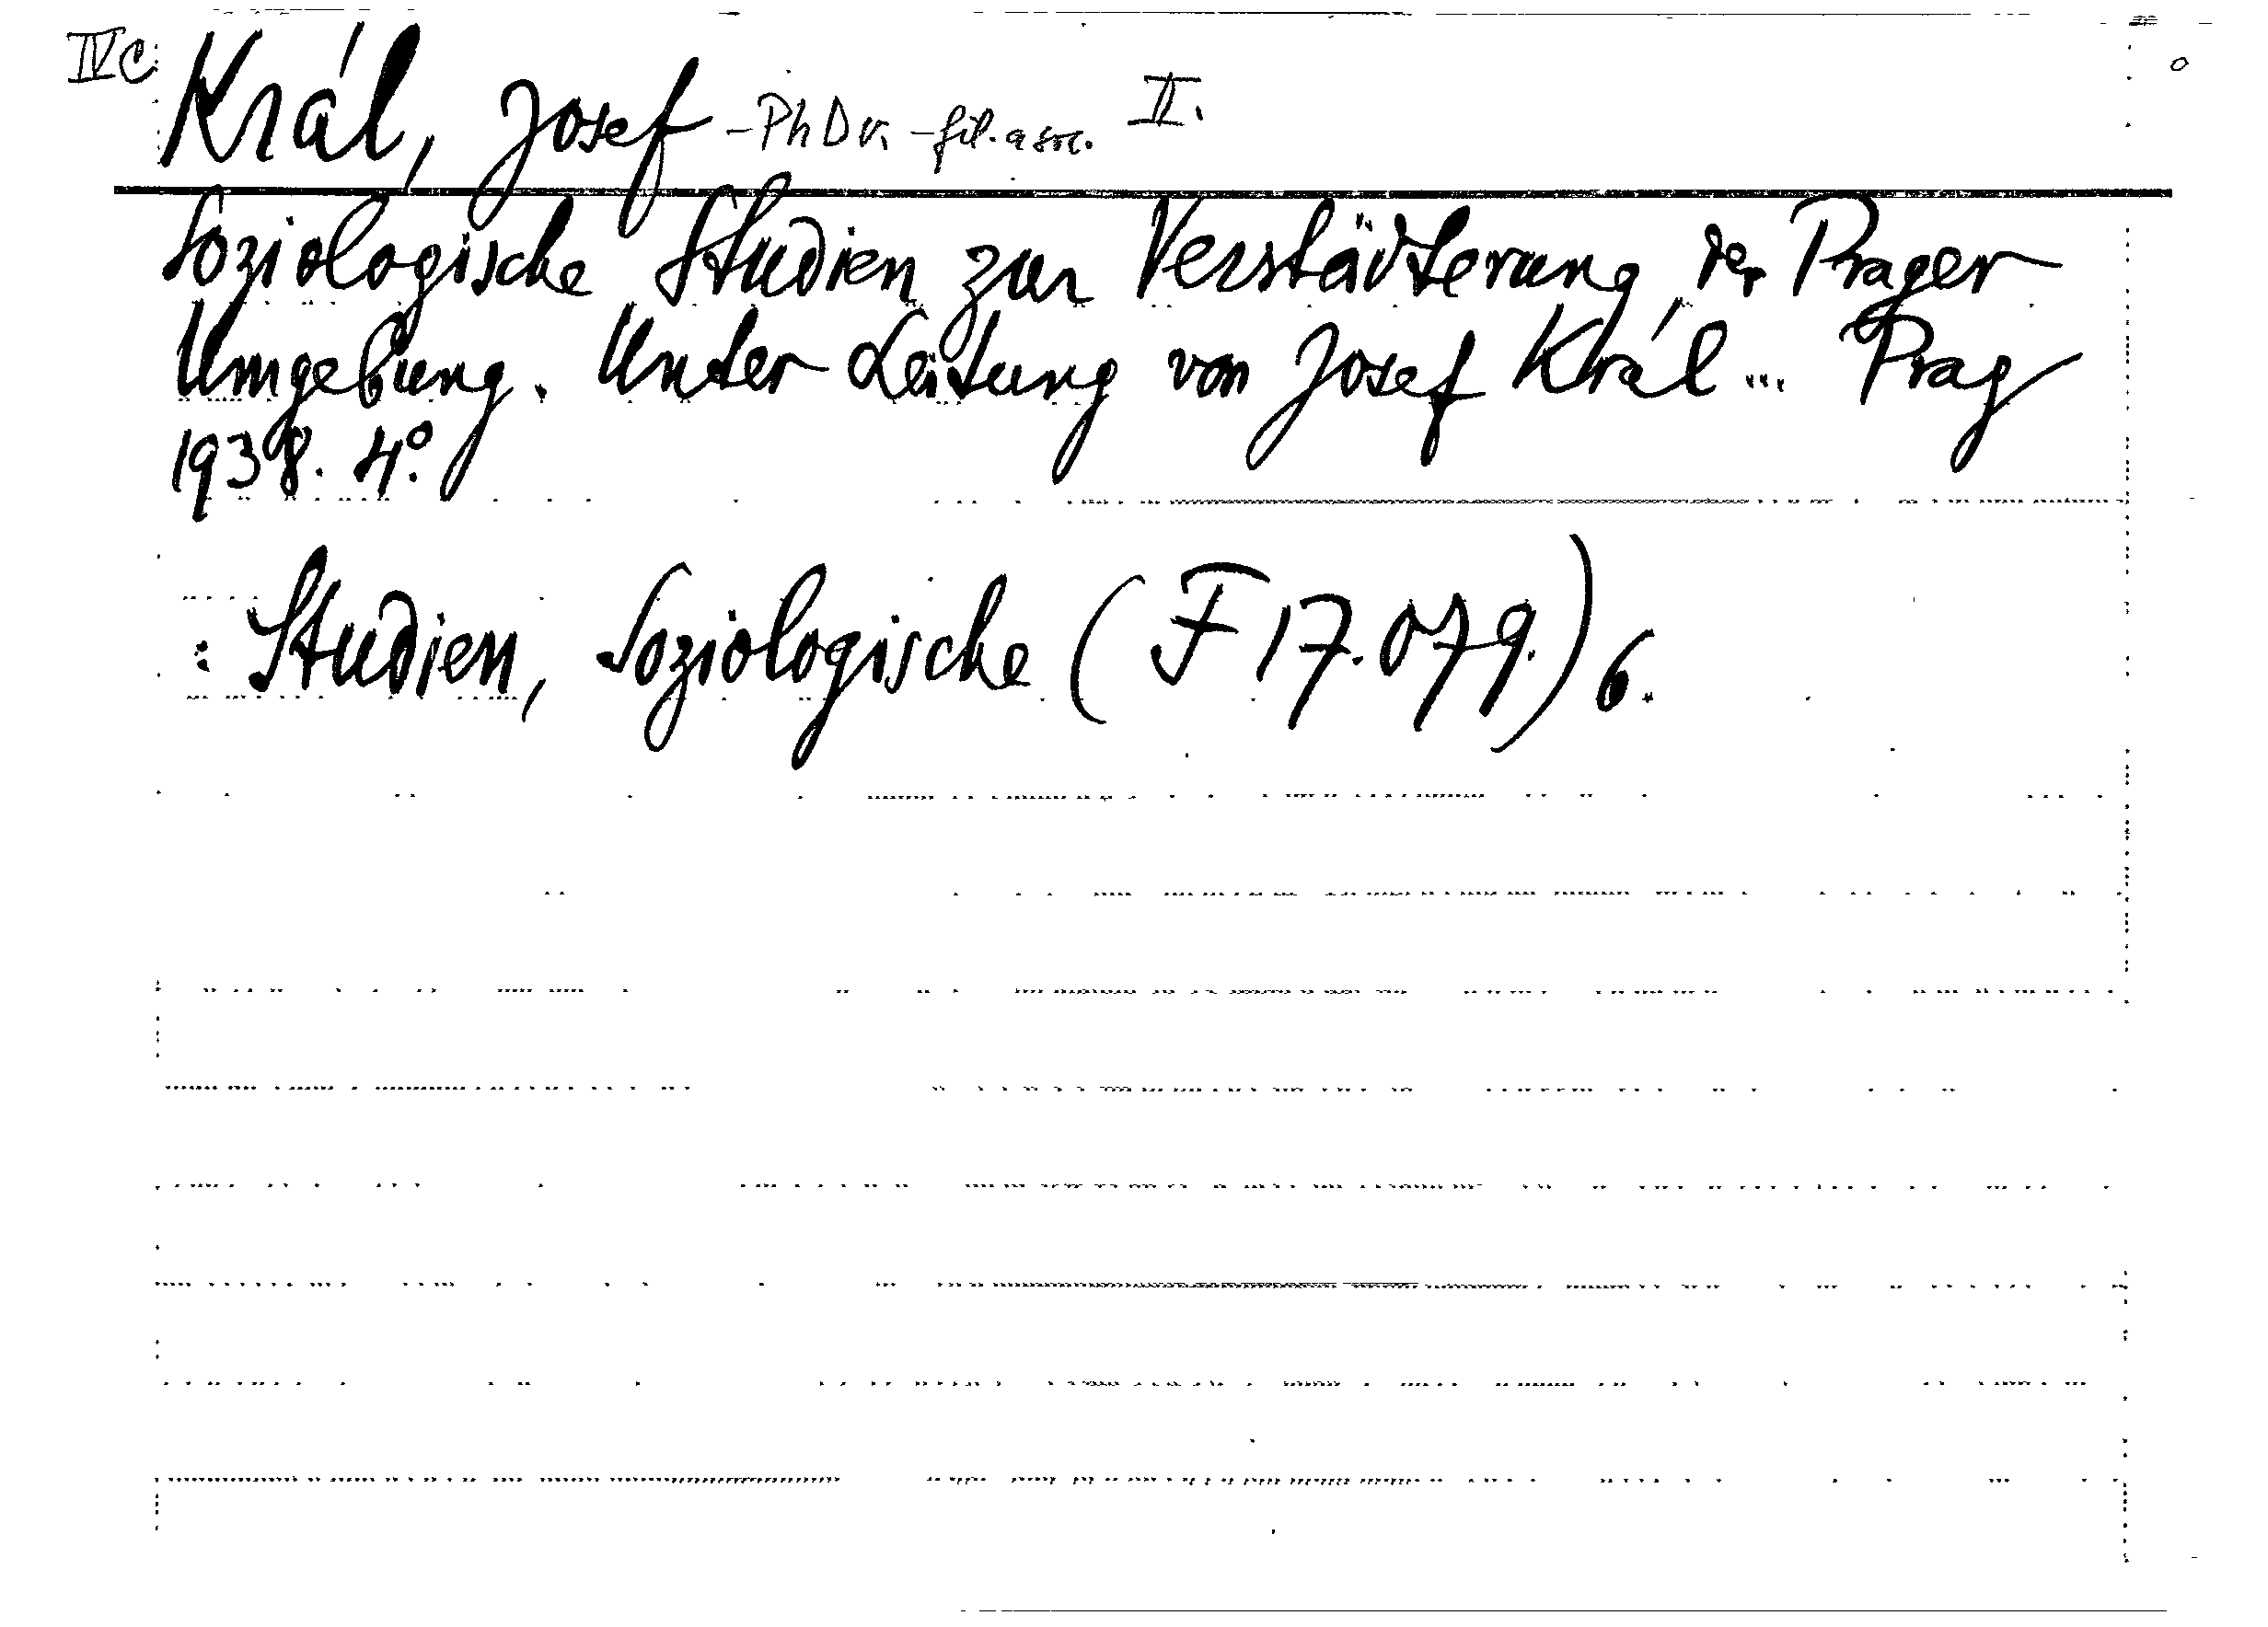 IVc Král, Josef - PhDr. - fil. a soc. II.
Soziologische Studien zur Verstädterung der Prager
Umgebung. Unter Leitung von Josef Král ... Prag
1938. 4°.
: Studien, Soziologische (F 17.079.) 6.